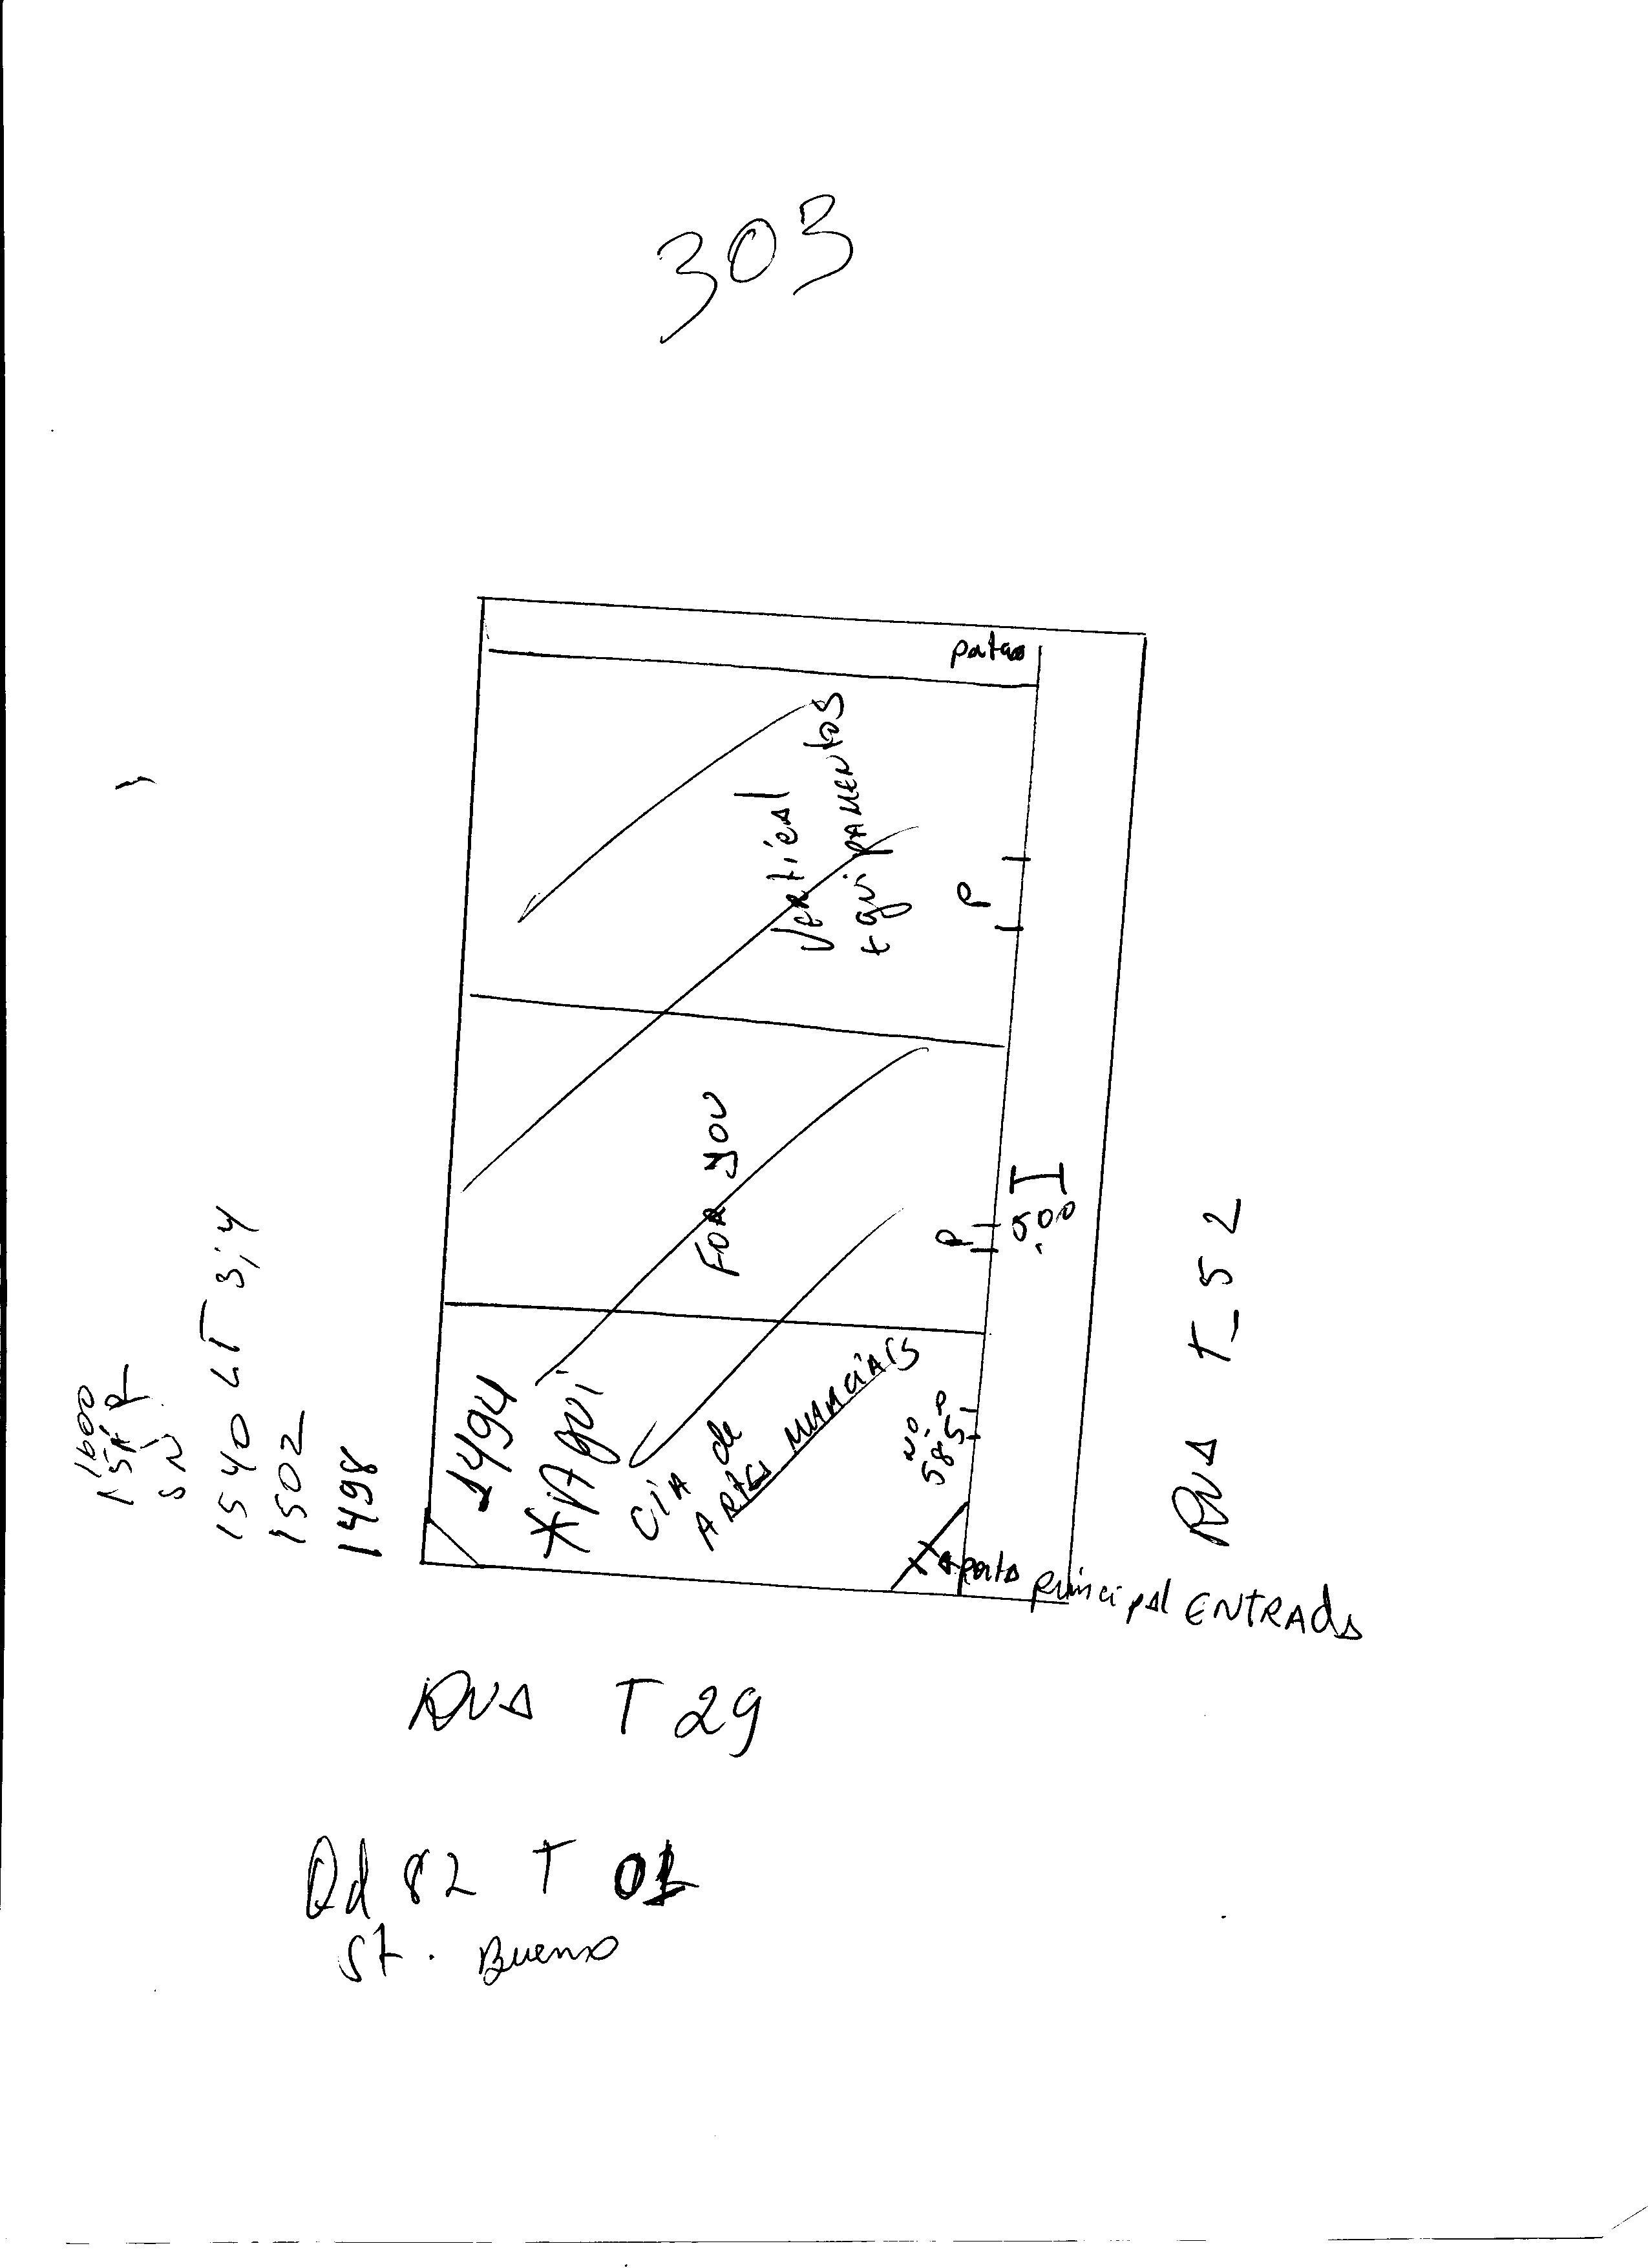 303
Vertical
EquiPAMENtoS
P
FOR YOU
P
500
1600
SN
1540 LT 3,4
1502
1498
1494
*Aqui
CIA de
ARtes MARCIAIS
NO P
585
A porta principal ENTRAdA
RUA T_52
RUA T 29
Qd 82 T 01
St. Bueno